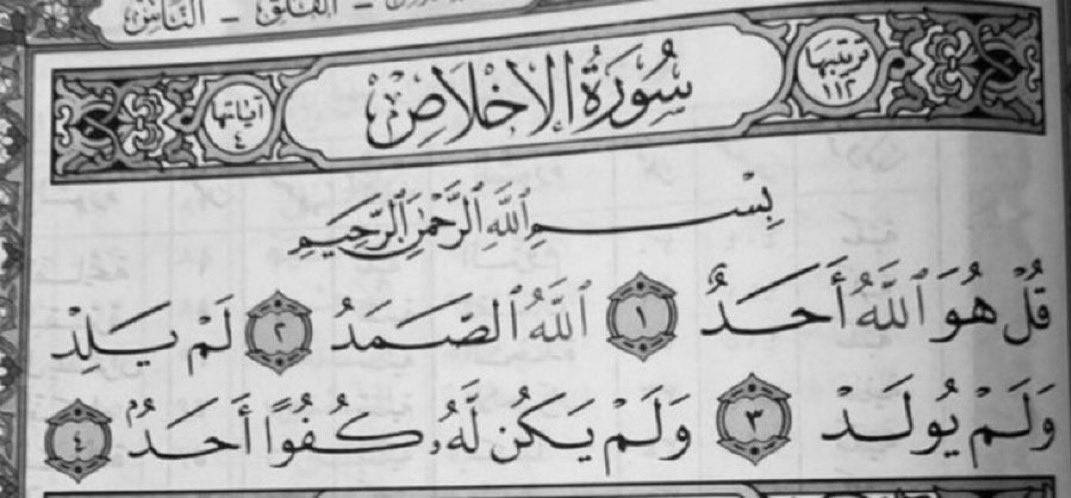 الفلق – الناس
ترتيبها ١١٢
سُورَةُ الإِخْلَاصِ
آياتها ٤
بِسْمِ ٱللَّهِ ٱلرَّحْمَٰنِ ٱلرَّحِيمِ
قُلْ هُوَ ٱللَّهُ أَحَدٌ ١ ٱللَّهُ ٱلصَّمَدُ ٢ لَمْ يَلِدْ
وَلَمْ يُولَدْ ٣ وَلَمْ يَكُن لَّهُۥ كُفُوًا أَحَدٌۢ ٤